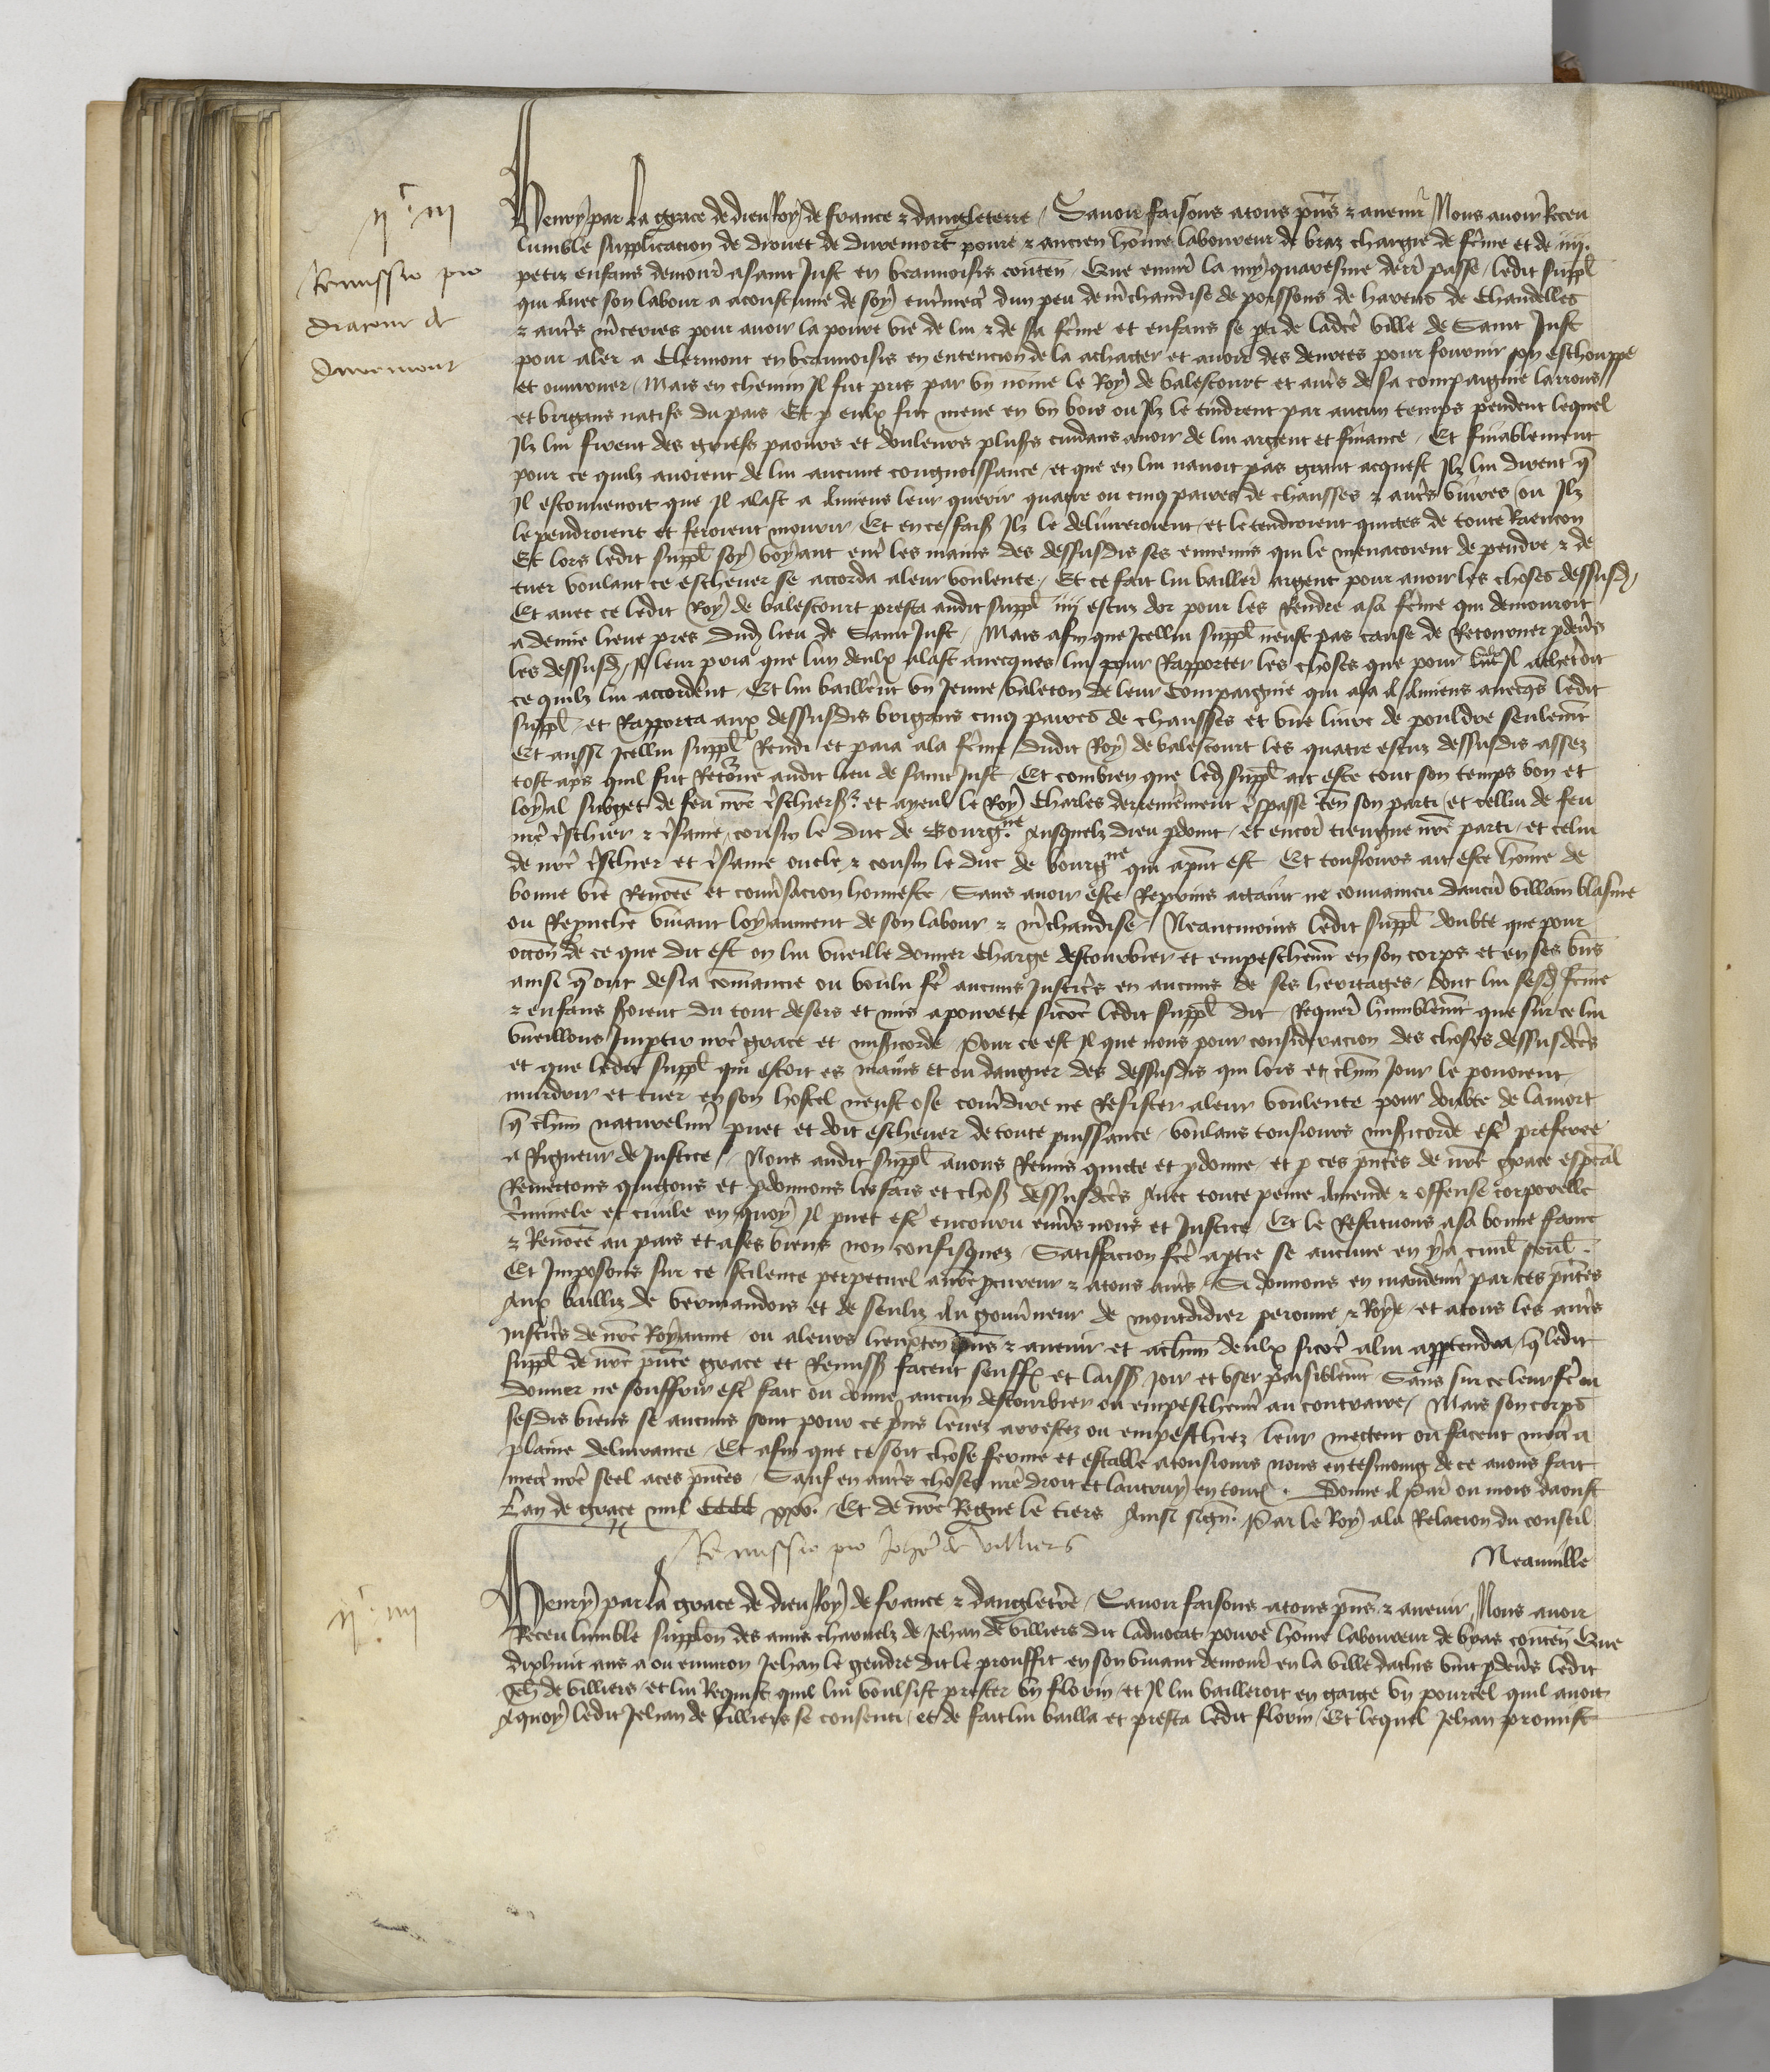 ii^c iii
Remissio pro
Droeto de
Duremort
Henry par la grace de dieu Roy de france & dangleterre / Savoir faisons a tous pñs & avenir Nous avoir Receu
lumble supplicacion de drouet de duremort povre & ancien hõme laboureur de braz chargie de fẽme et de iiii.
petiz enfans demour̃ a saint Just en beauvoisis conteñ / Que envir̃ la my quaresme derr̃ passe / ledit suppl̃
qui avec son labour a acoustume de soy entr̃mect̃ dun peu de m̃chandise de poissons de harens de Chandelles
& autr̃s m̃ceries pour avoir la povre vie de lui & de sa fẽme et enfans se pti de ladcẽ ville de Saint Just
pour aler a Clermont en beauvoisis en entencion de la achatter et avoir des denrees pour fournir son eschouppe
et ouvrouer / Mais en chemin Il fut pris par vn nõme le Roy de valescourt et autr̃s de sa compaignie larrons
et brigans natifs du pais Et p eulx fut mene en vn bois ou Ilz le tindrent par aucun temps pendent lequel
Ilz lui firent des griefs paours et douleurs plus̃s cuidans avoir de lui argent et finance / Et finablement
pour ce quilz avoient de lui aucune congnoissance / et que en lui navoit pas grant acquest Ilz lui dirent q̃
Il esconvenoit que Il alast a Amiens leur querir quatre ou cinq paires de chausses & autr̃s vivres / ou Ilz
le pendroient et feroient mourir Et en ce fais̃ Ilz le delivreroient / et le tendroient quictes de toute Raencon
Et lors ledit suppl̃ soy voyant entr̃ les mains des dessusdis ses ennemis qui le menacoient de pendre & de
tuer voulant ce eschever se accorda a leur voulente / Et ce fait lui baillerẽ argent pour avoir les choses dessusd̃
Et avec ce ledit Roy de valescourt presta audit suppl̃ iiii escuz dor pour les Rendre a sa fẽme qui demouroit
a demie lieue pres dud̃ lieu de Saint Just / Mais afin que Icellui suppl̃ neust pas cause de Retourner pdevers
les dessusd̃ / Il leur pria que lun deulx alast avecques lui pour Rapporter les choses que pour eulx Il achetoit
ce quilz lui accorderẽt / Et lui baillerẽt vn Jeune valeton de leur Compaignie qui ala a Amiens avecq̃s ledit
suppl̃ / et Rapporta aux dessusdis brigans cinq paires de chausses et vne livre de pouldre seulemẽt
Et aussi Icellui suppl̃ Rendi et paia a la fẽme dudit Roy de valescourt les quatre escuz dessusdis assez
tost apr̃s quil fut Retõrne audit lieu de saint Just / Et combien que led̃ suppl̃ ait este tout son temps bon et
loyal subget de feu nr̃e tr̃schier s^r et ayeul le Roy Charles derrenierement tr̃spasse / teñ son parti / et cellui de feu
nr̃e tr̃schier & tr̃same cousin le duc de Bourg^ne Ausquelz dieu pdoint / et encor̃ tiengne nr̃e parti / et celui
de nr̃e tr̃schier et tr̃same oncle & cousin le duc de bourg^ne qui a pñt est Et tousiours ait este hõme de
bonne vie Renõmee et conṽsacion honneste / Sans avoir este Reprins attaint ne convaincu daucũ villain blasme
ou Reprouche vivant loyaument de son labour & m̃chandise / Neantmoins ledit suppl̃ doubte que pour
occõn de ce que dit est on lui vueille donner Charge destourbier et empeschemt̃ en son corps et en ses biẽs
ainsi q̃ ont desia cõmancie ou voulu fẽ aucuns Justicẽs en aucuns de ses heritages / dont lui sesd̃ fẽme
& enfans seroient du tout desers et mis a povrete sicõe ledit suppl̃ dit / Requer̃ humblemt̃ que sur ce lui
vueillons Imptir nr̃e grace et misericorde Pour ce est Il que nous pour consideracion des choses dessusdcẽs
et que ledit suppl̃ qui estoit es mains et ou dangier des dessusdis qui lors et chũn Jour le povoient
murdrir et tuer en son hostel neust ose contr̃dire ne Resister a leur voulente pour doubte de la mort
q̃ chũn naturelmt̃ puet et doit eschever de toute puissance / voulans tousiours misericorde estr̃ preferee
a Rigueur de Justice / Nous audit suppl̃ avons Remis quicte et pdonne / et p ces pñtes de nr̃e grace esp̃cial
Remectons quictons et pdonnons les fais et chos̃ dessusdcẽs Avec toute peine Amende & offense corporelle
criminele et civile en quoy Il puet estr̃ encouru envers nous et Justice / Et le Restituons a sa bonne fame
& Renõmee au pais et a ses biens non confisquez / Satisfacion fcẽ a ptie se aucune en y a civil̃ seul̃.
Et Imposons sur ce scilence perpetuel a nr̃e pcureur & a tous autr̃s / Si donnons en mandemt̃ par ces pñtes
Aux bailliz de vermandois et de senliz Au gouverneur de mondidier peronne & Roye / et a tous les autr̃s
Justicẽs de nr̃e Royaume / ou a leurs lieuxteñ pñs & avenir et a chũn deulx sicõe a lui apptendra / q̃ ledit
suppl̃ de nr̃e pñte grace et Remiss̃ facent seuffr̃ et laiss̃ Joir et vser paisiblemt̃ Sans sur ce leur fẽ ou
donner ne souffrir estr̃ fait ou donne aucun destourbier ou empeschemt̃ au contraire / Mais son corps
sesdis biens se aucuns sont pour ce pris levez arrestez ou empeschiez / leur mectent ou facent mect̃ a
plaine delivrance / Et afin que ce soit chose ferme et estable a tousiours nous en tesmoing de ce avons fait
mect̃ nr̃e seel a ces pñtes / Sauf en autr̃s choses nr̃e droit et lautruy en toutes. Donne A Par̃ ou mois daoust
Lan de grace mil CCCC xxv. / Et de nr̃e Regne le tiers Ainsi sign̄ Par le Roy a la Relacion du conseil
Neauville
Remissio pro Johẽ de villiers
ii^c iiii
Henry par la grace de dieu Roy de france & dangleterr̃e / Savoir faisons a tous pñs & avenir / Nous avoir
Receu lumble supplõn des amis charnelz de Jehan de villiers dit ladvocat povre hõme laboureur de bras conteñ Que
dixhuit ans a ou environ Jehan le gendre dit le prouffit en son vivant demour̃ en la ville dathis vint pdevers ledit
Jeh̃ de villiers / et lui Requist quil lui voulsist prester vn florin / et Il lui bailleroit en gaige vn pourcel quil avoit
Aquoy ledit Jehan de villiers se consenti / et de fait lui bailla et presta ledit florin / Et lequel Jehan promist